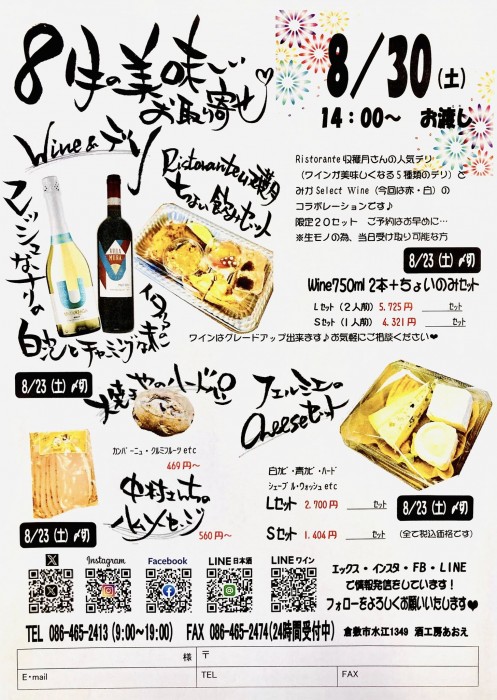 8月の美味しい
お取り寄せ
8/30(土)
14:00〜 お渡し
Wine&デリ
Ristorante収穫月
ちょい飲みセット
Ristorante収穫月さんの人気デリ
(ワインが美味しくなる5種類のデリ)と
みかSelect Wine(今回は赤・白)の
コラボレーションです♪
限定20セット ご予約はお早めに…
※生モノの為、当日受け取り可能な方
8/23(土)〆切
Wine750ml 2本+ちょいのみセット
Lセット(2人前) 5.725円 セット
Sセット(1人前) 4.321円 セット
ワインはグレードアップ出来ます♪お気軽にご相談ください❤
8/23(土)〆切
カンパーニュ・クルミフルーツetc
469円〜
フェルミエの
Cheeseセット
白カビ・青カビ・ハード
シェーブル・ウォッシュetc
Lセット 2.700円 セット
8/23(土)〆切
Sセット 1.404円 セット
(全て税込価格です)
中村さんちの
ハム・ソーセージ
560円〜
8/23(土)〆切
X
Instagram
Facebook
LINE日本酒
LINEワイン
エックス・インスタ・FB・LINE
で情報発信をしています!
フォローをよろしくお願いいたします❤
TEL 086-465-2413(9:00〜19:00) FAX 086-465-2474(24時間受付中) 倉敷市水江1349 酒工房あおえ
様 〒
E・mail TEL FAX